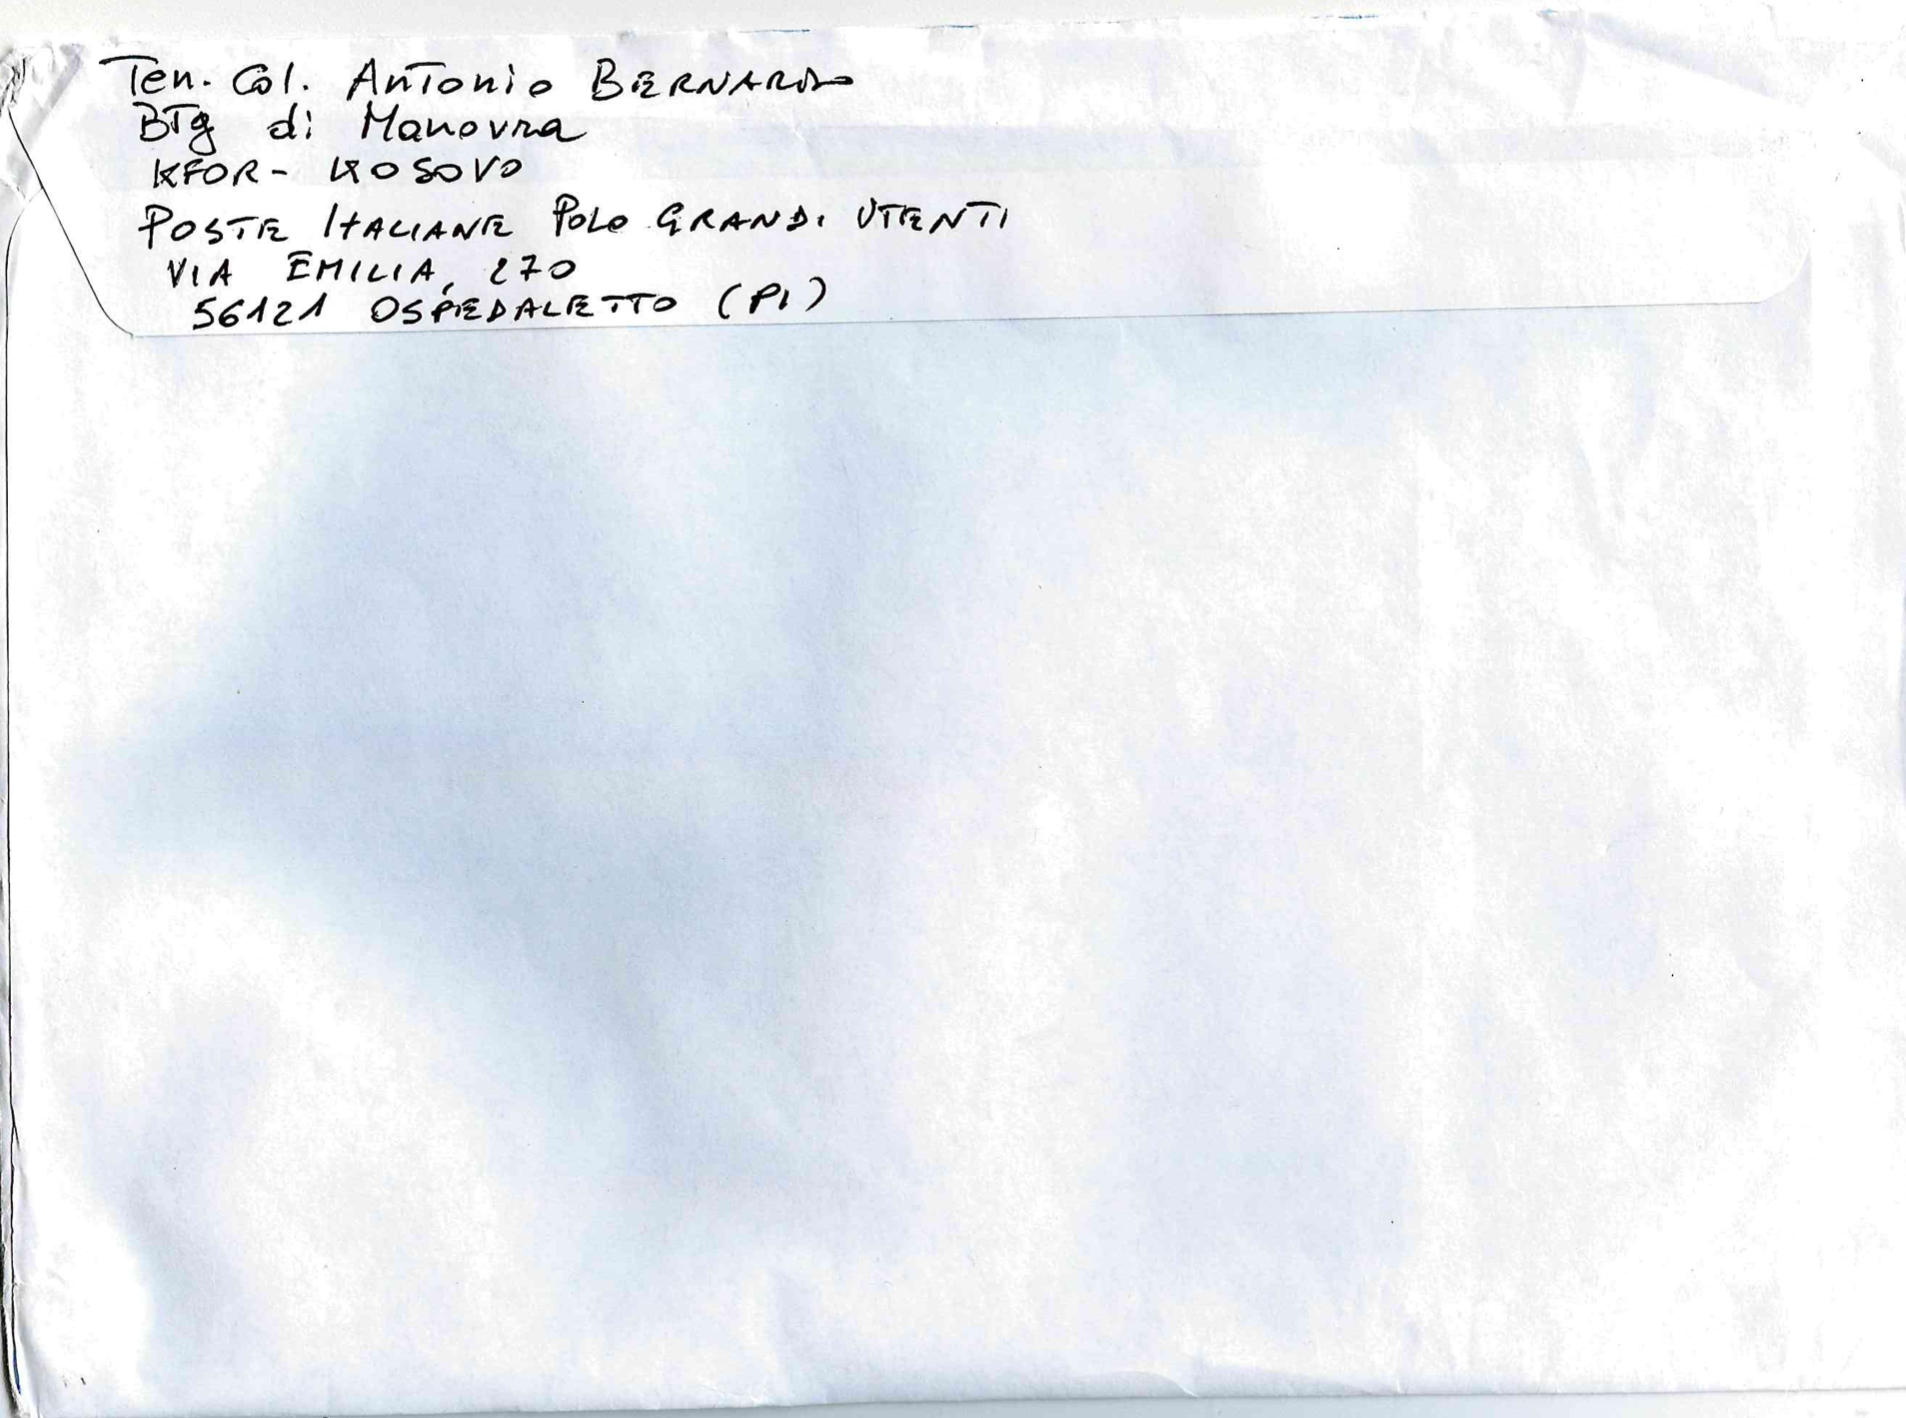 Ten. Col. Antonio BERNARDO
BTg di Manovra
KFOR - KOSOVO
POSTE ITALIANE POLO GRANDI UTENTI
VIA EMILIA, 270
56121 OSPEDALETTO (PI)